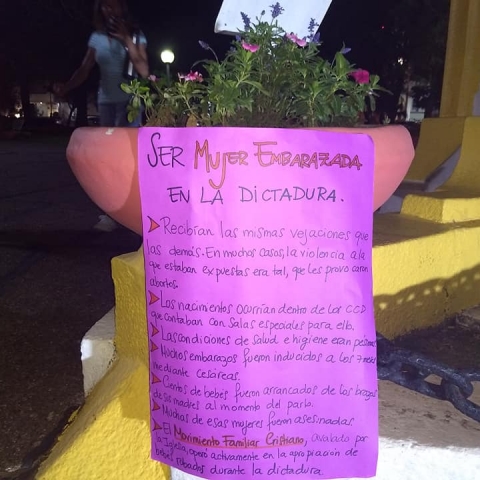 SER MUJER EMBARAZADA
EN LA DICTADURA.
Recibían las mismas vejaciones que
las demás. En muchos casos, la violencia a la
que estaban expuestas era tal, que les provocaron
abortos.
Los nacimientos ocurrían dentro de los CCD
que contaban con salas especiales para ello.
Las condiciones de salud e higiene eran pésimas
Muchos embarazos fueron inducidos a los 7 meses
mediante cesáreas.
Cientos de bebes fueron arrancados de los brazos
de sus madres al momento del parto.
Muchas de esas mujeres fueron asesinadas
El Movimiento Familiar Cristiano, avalado por
la Iglesia, operó activamente en la apropiación de
bebes robados durante la dictadura